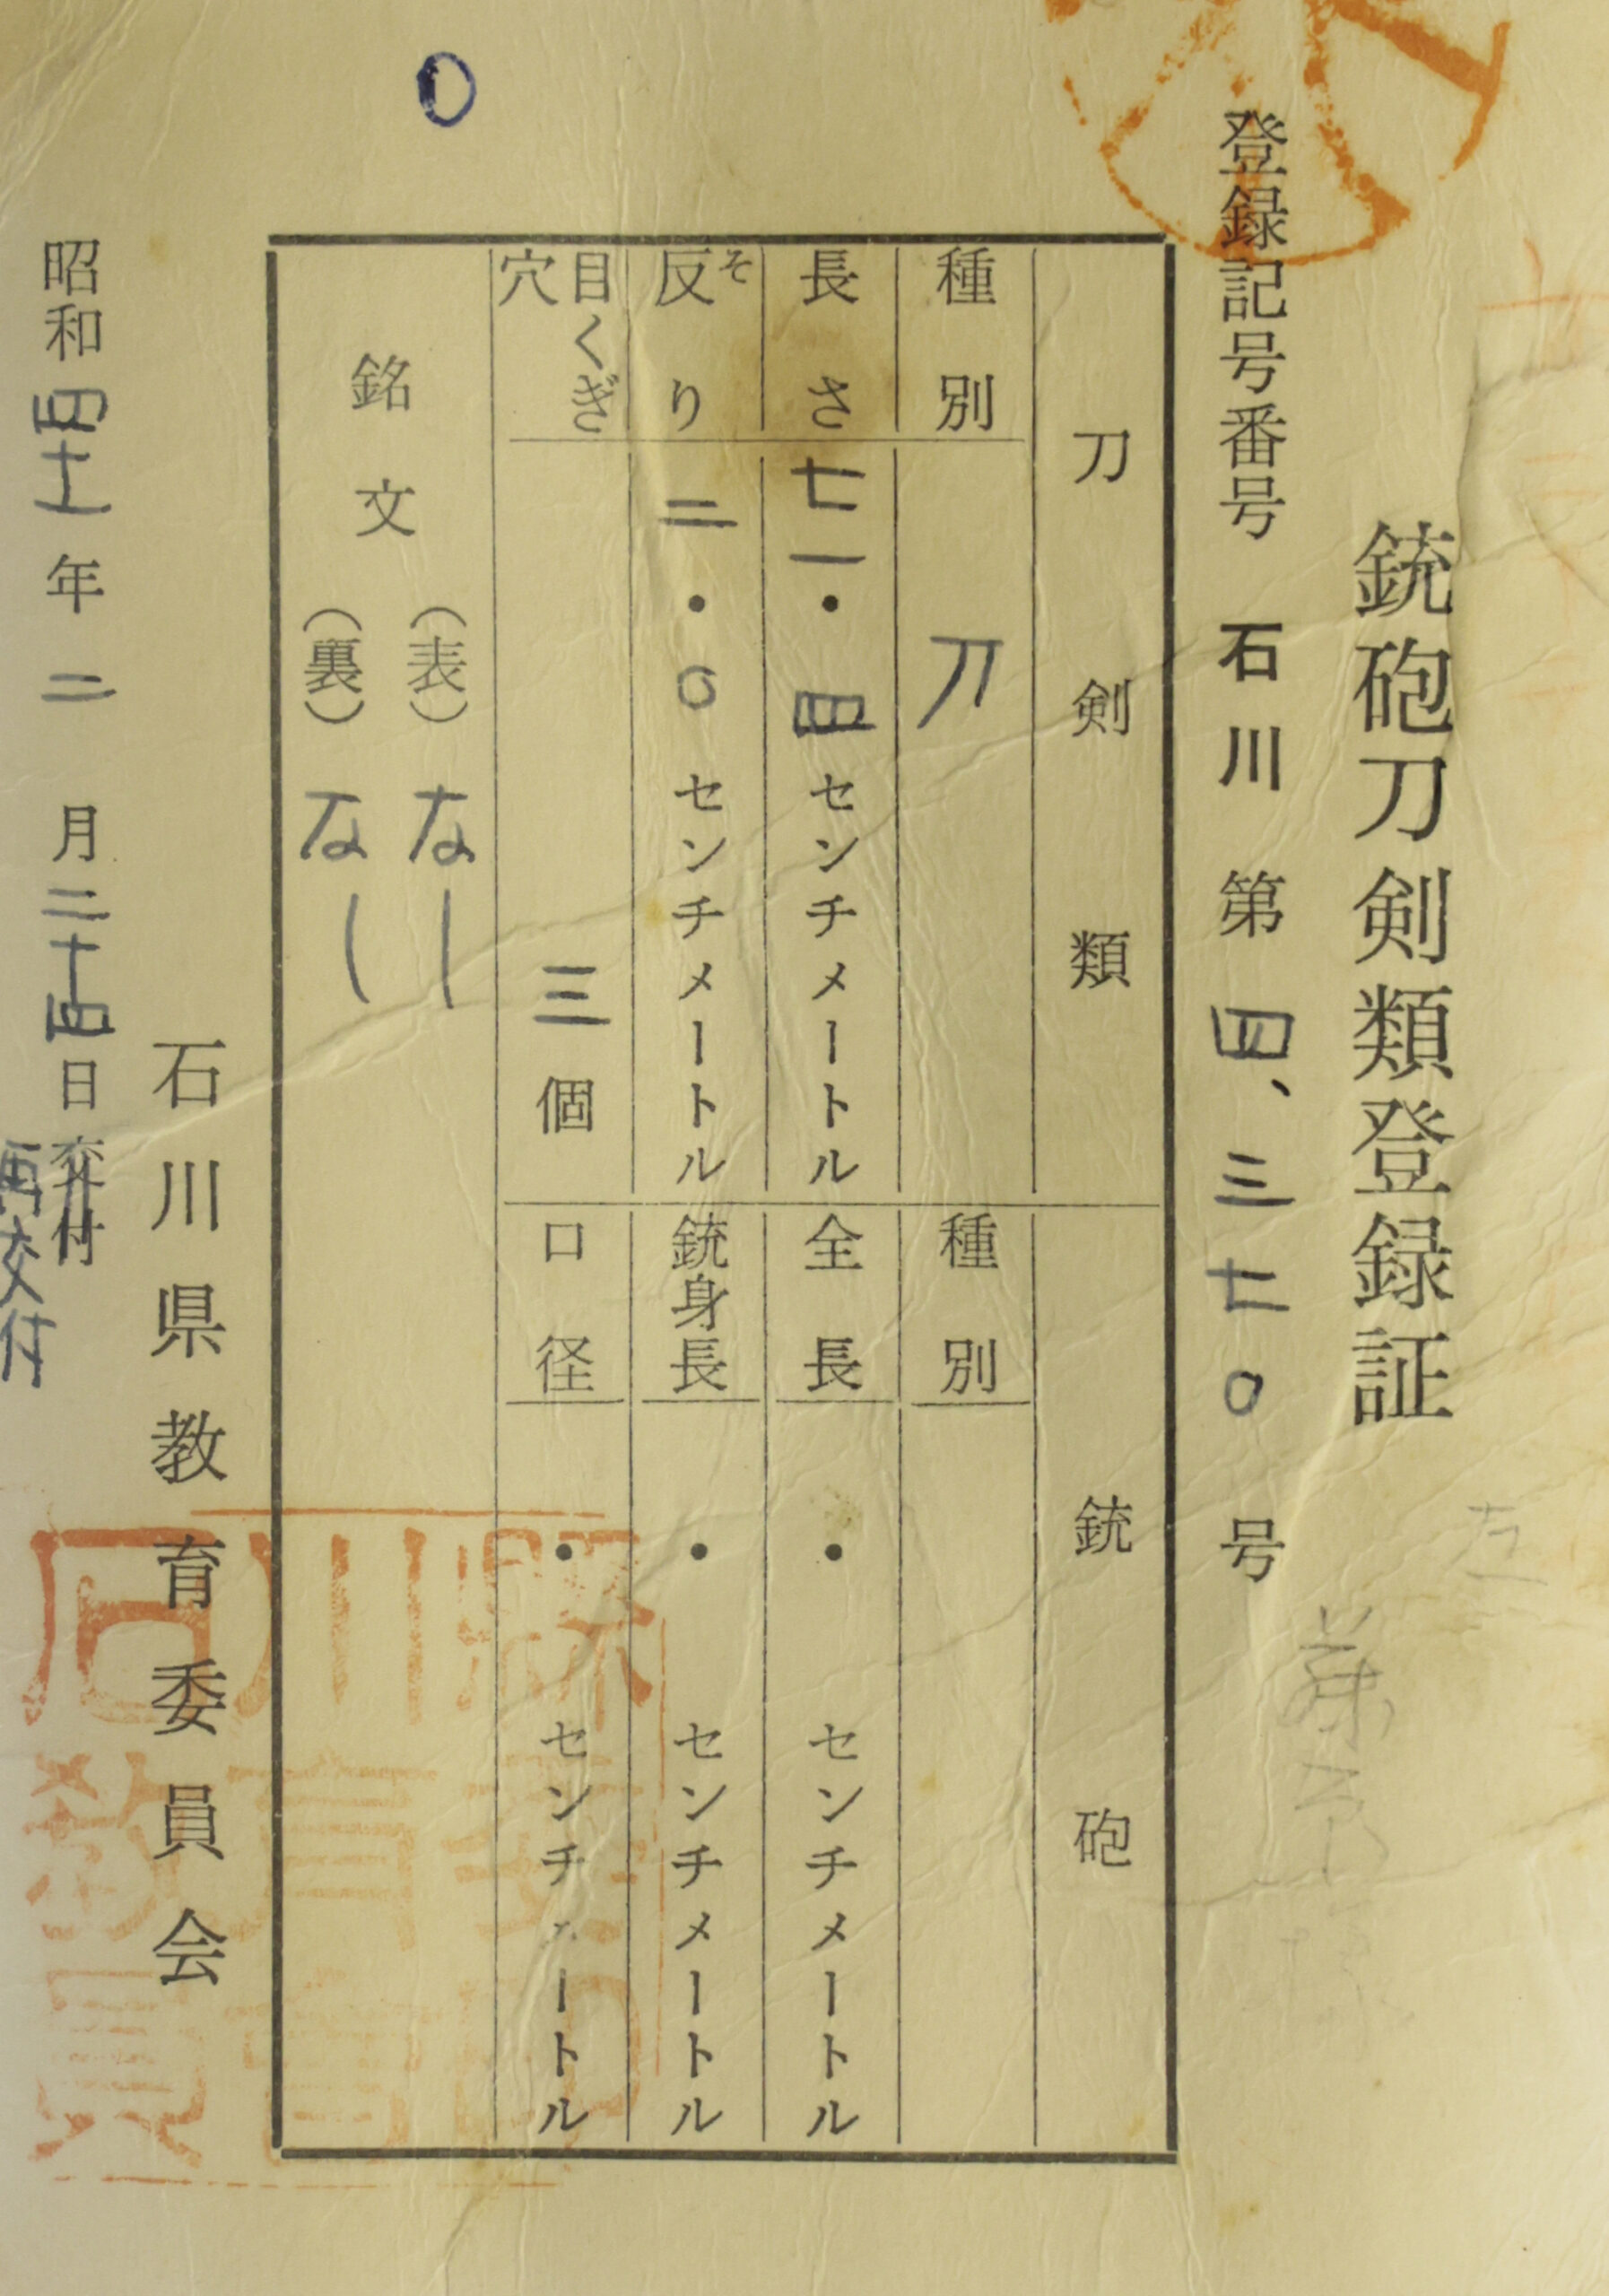 銃砲刀剣類登録証
登録記号番号 石川 第 四、三七〇 号
刀剣類
種別 刀
長さ 七一・四センチメートル
反り 二・〇センチメートル
そ
目くぎ穴 三個
銘文
(表)なし
(裏)なし
銃砲
種別
全長 ・ センチメートル
銃身長 ・ センチメートル
口径 ・ センチメートル
石川県教育委員会
昭和四十一年二月二十四日交付
再交付